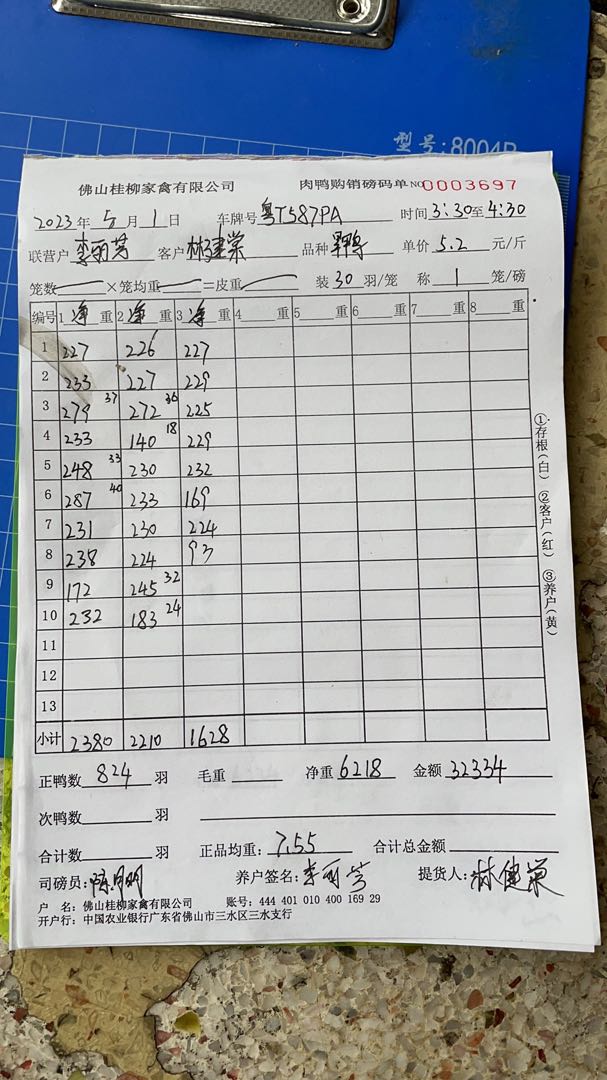 型号:8004B
佛山桂柳家禽有限公司 肉鸭购销磅码单 NO 0003697
2023年 5月 1日 车牌号 粤T587PA 时间 3:30至4:30
联营户 李丽芳 客户 林建荣 品种 单价 5.2 元/斤
笼数 ×笼均重 =皮重 装 30 羽/笼 称 1 笼/磅
编号 1 净 重 2 净 重 3 净 重 4 重 5 重 6 重 7 重 8 重
1 227 226 227
2 233 227 229
3 279 37 272 36 225
4 233 140 18 229
5 248 33 230 232
6 287 40 233 169
7 231 230 224
8 238 224 93
9 172 245 32
10 232 183 24
11
12
13
小计 2380 2210 1628
①存根(白) ②客户(红) ③养户(黄)
正鸭数 824 羽 毛重 净重 6218 金额 32334
次鸭数 羽
合计数 羽 正品均重: 7.55 合计总金额
司磅员: 养户签名: 李丽芳 提货人: 林健荣
户 名: 佛山桂柳家禽有限公司 账号: 444 401 010 400 169 29
开户行: 中国农业银行广东省佛山市三水区三水支行